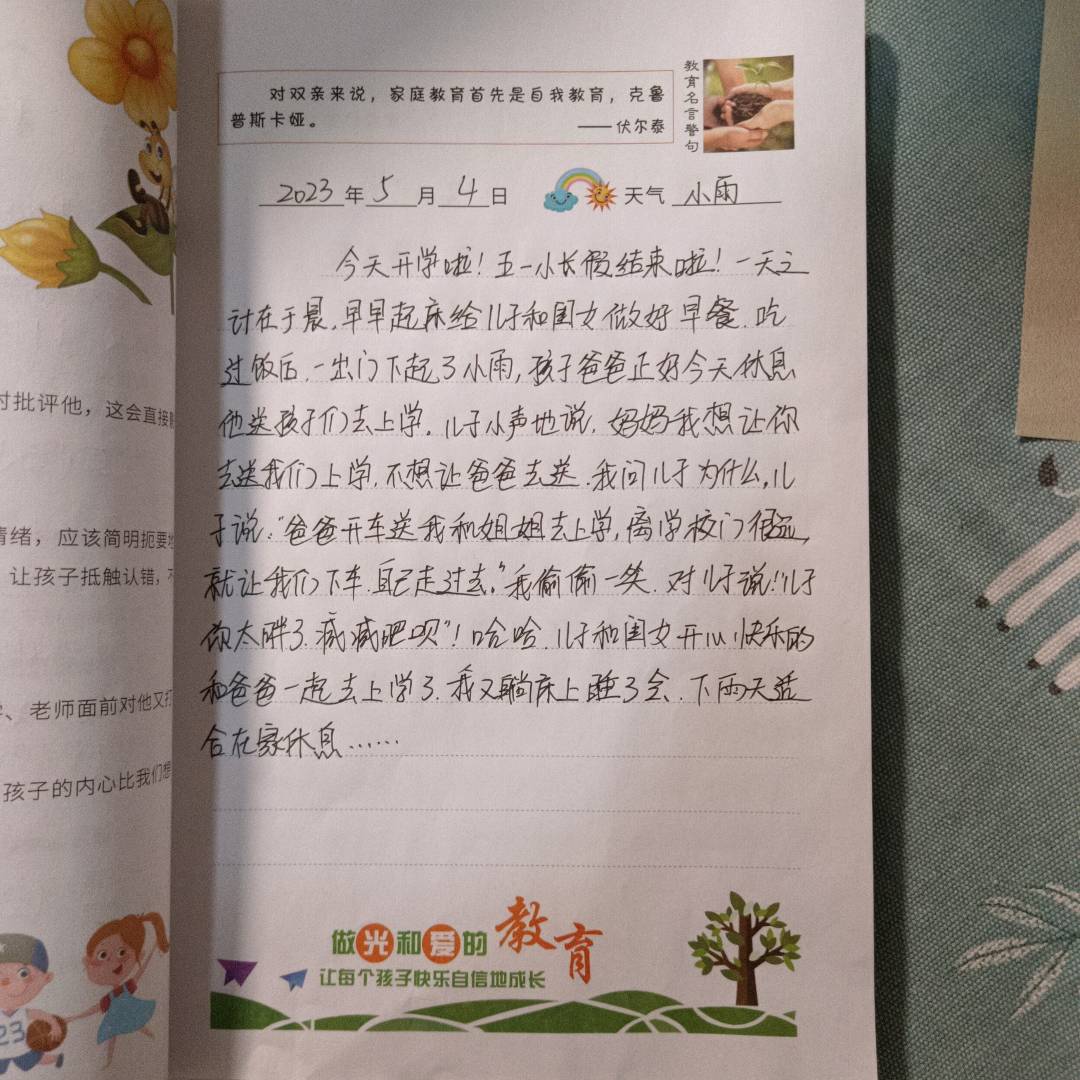 对双亲来说，家庭教育首先是自我教育，克鲁
普斯卡娅。
——伏尔泰
教育名言警句
2023年5月4日 天气 小雨
今天开学啦！五一小长假结束啦！一天之
计在于晨，早早起床给儿子和闺女做好早餐．吃
过饭后．一出门下起了小雨，孩子爸爸正好今天休息
他送孩子们去上学．儿子小声地说．妈妈我想让你
去送我们上学．不想让爸爸去送．我问儿子为什么，儿
子说：“爸爸开车送我和姐姐去上学，离学校门很远，
就让我们下车．自己走过去。”我偷偷一笑．对儿子说：“儿子
你太胖了．减减肥呗”！哈哈．儿子和闺女开心快乐的
和爸爸一起去上学了．我又躺床上睡了会．下雨天适
合在家休息……
做光和爱的教育
让每个孩子快乐自信地成长
时批评他，这会直接
情绪，应该简明扼要
让孩子抵触认错，
、老师面前对他又打
孩子的内心比我们想
23